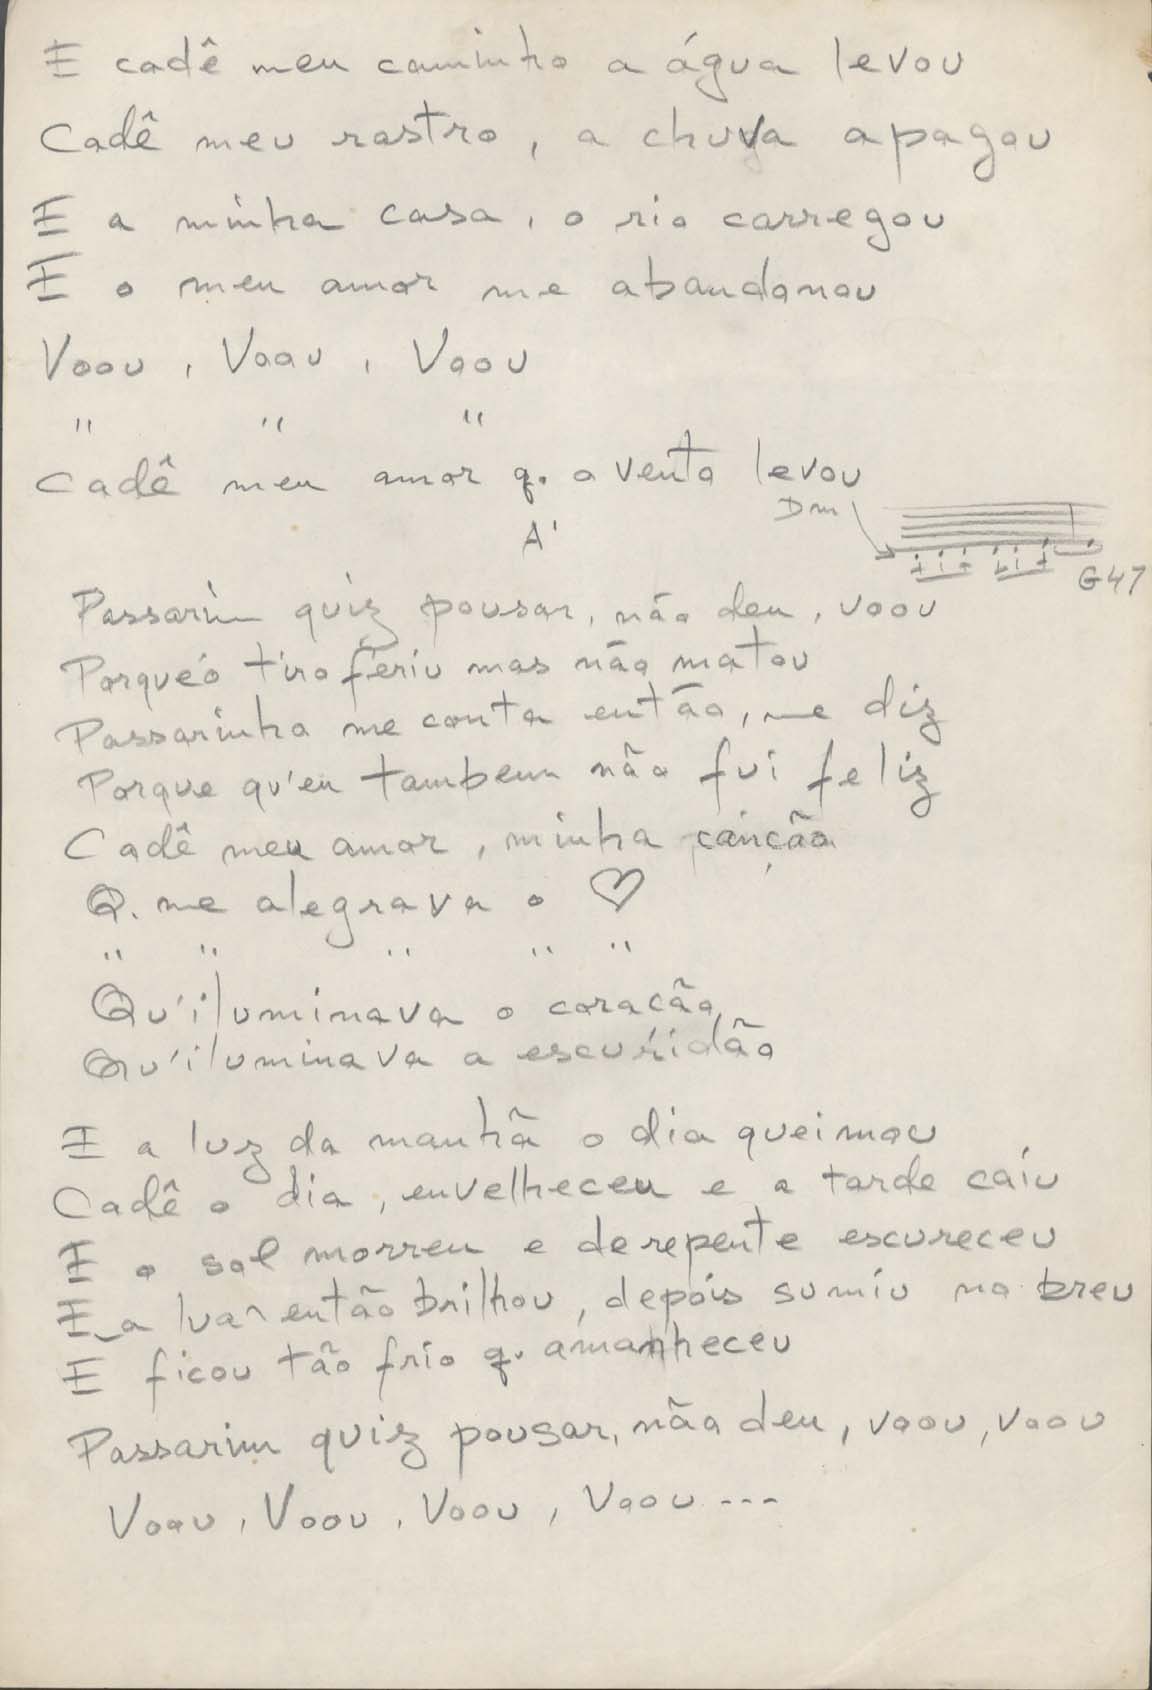 E cadê meu caminho a água levou
Cadê meu rastro, a chuva apagou
E a minha casa, o rio carregou
E o meu amor me abandonou
Voou, Voou, Voou
" " "
Cadê meu amor q. o vento levou
Dm
A'
G47
Passarim quiz pousar, não deu, voou
Porque o tiro feriu mas não matou
Passarinho me conta então, me diz
Porque qu'eu tambem não fui feliz
Cadê meu amor, minha canção
Q. me alegrava o ♡
" " " " "
Qu'iluminava o coração
Qu'iluminava a escuridão
E a luz da manhã o dia queimou
Cadê o dia, envelheceu e a tarde caiu
E o sol morreu e derepente escureceu
E a lua então brilhou, depois sumiu no breu
E ficou tão frio q. amanheceu
Passarim quiz pousar, não deu, voou, voou
Voou, Voou, Voou, Voou ---